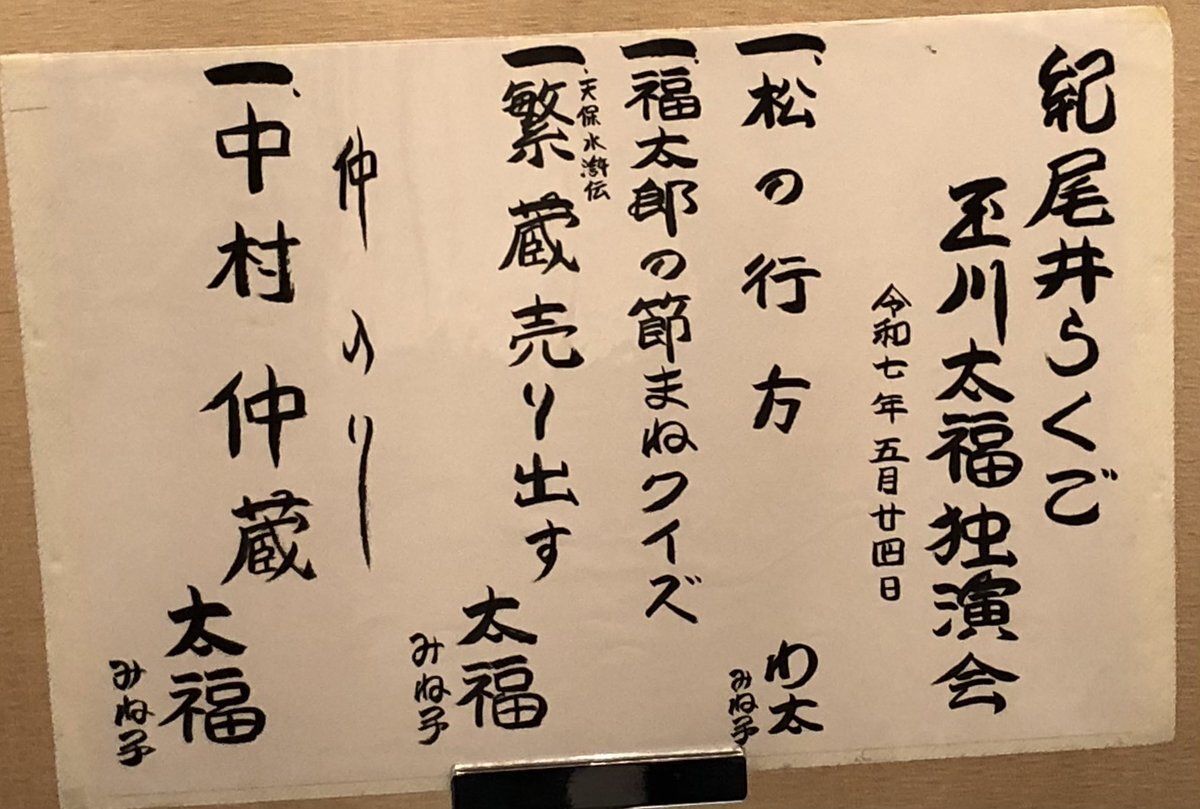 紀尾井らくご
玉川太福独演会
令和七年五月廿四日
一、松の行方
わ太
みね子
一、福太郎の節まねクイズ
天保水滸伝
一、繁蔵売り出す
太福
みね子
仲入り
一、中村仲蔵
太福
みね子